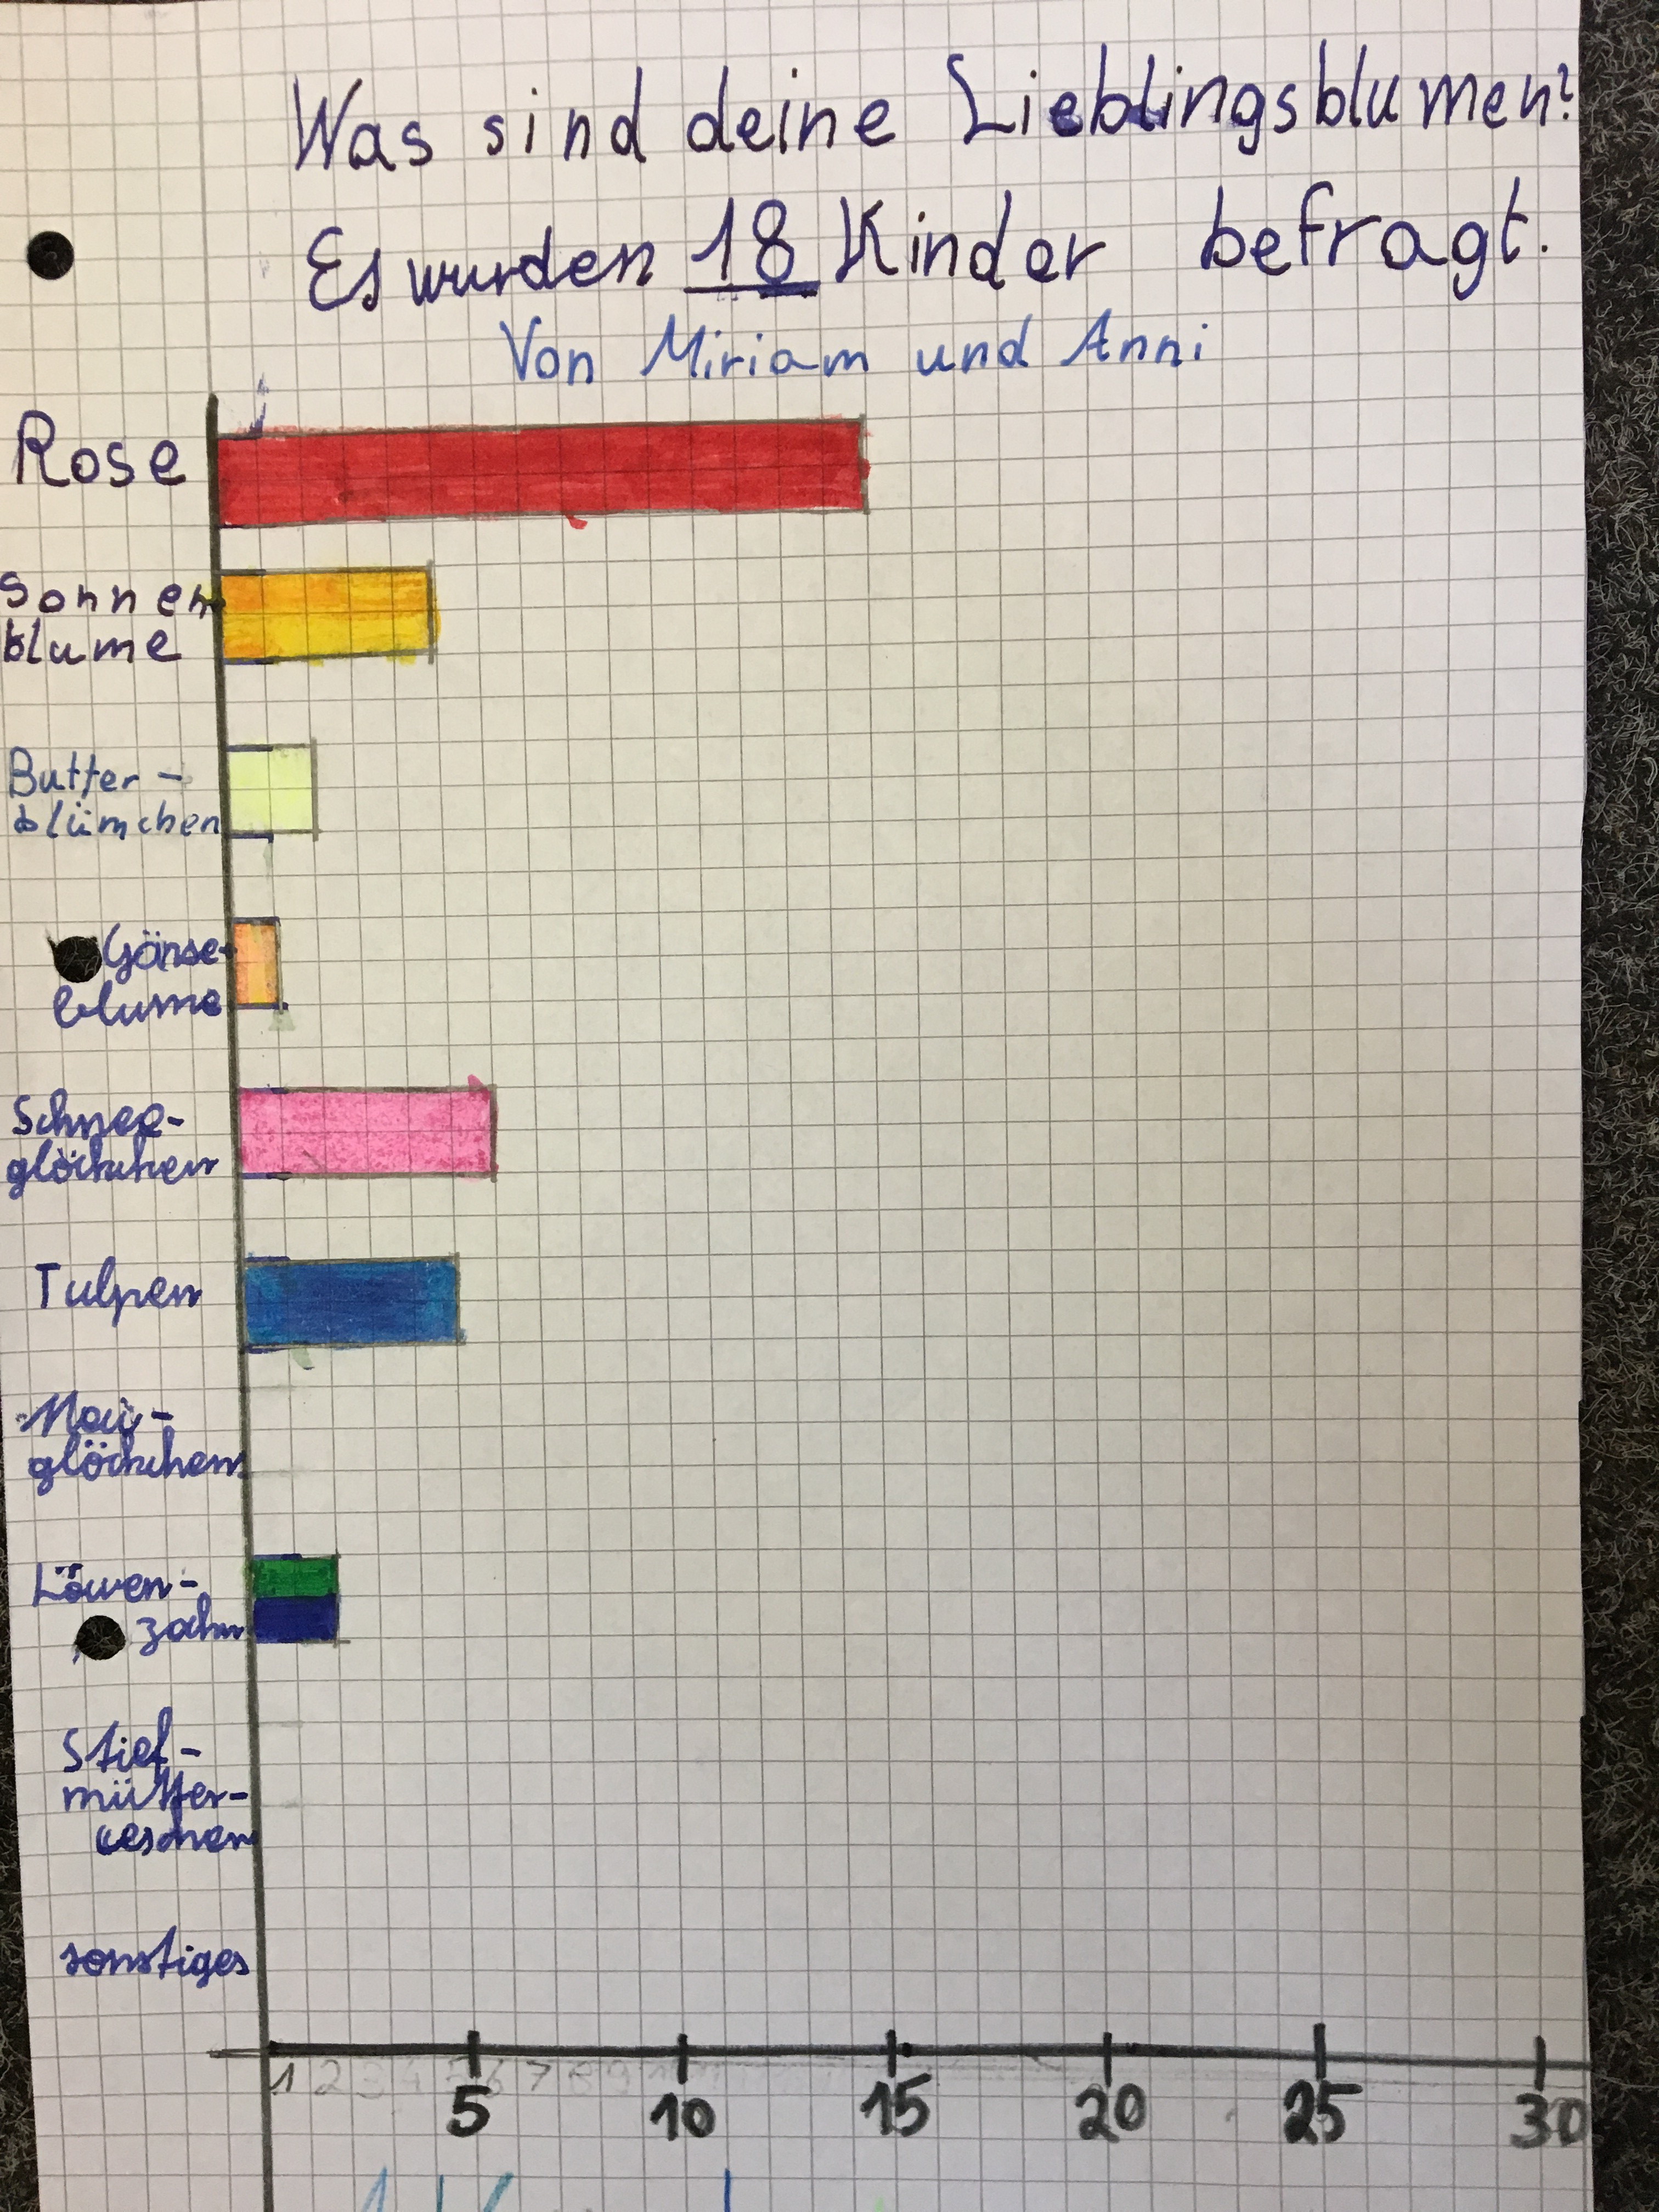 Was sind deine Lieblingsblumen?
Es wurden 18 Kinder befragt.
Von Miriam und Anni
Rose
Sonnen
blume
Butter-
blümchen
Gänse-
blume
Schnee-
glöckchen
Tulpen
Mai-
glöckchen
Löwen-
zahn
Stief-
mütter-
sonstiges
1 2 3 4 5 6 7 8 9
5 10 15 20 25 30